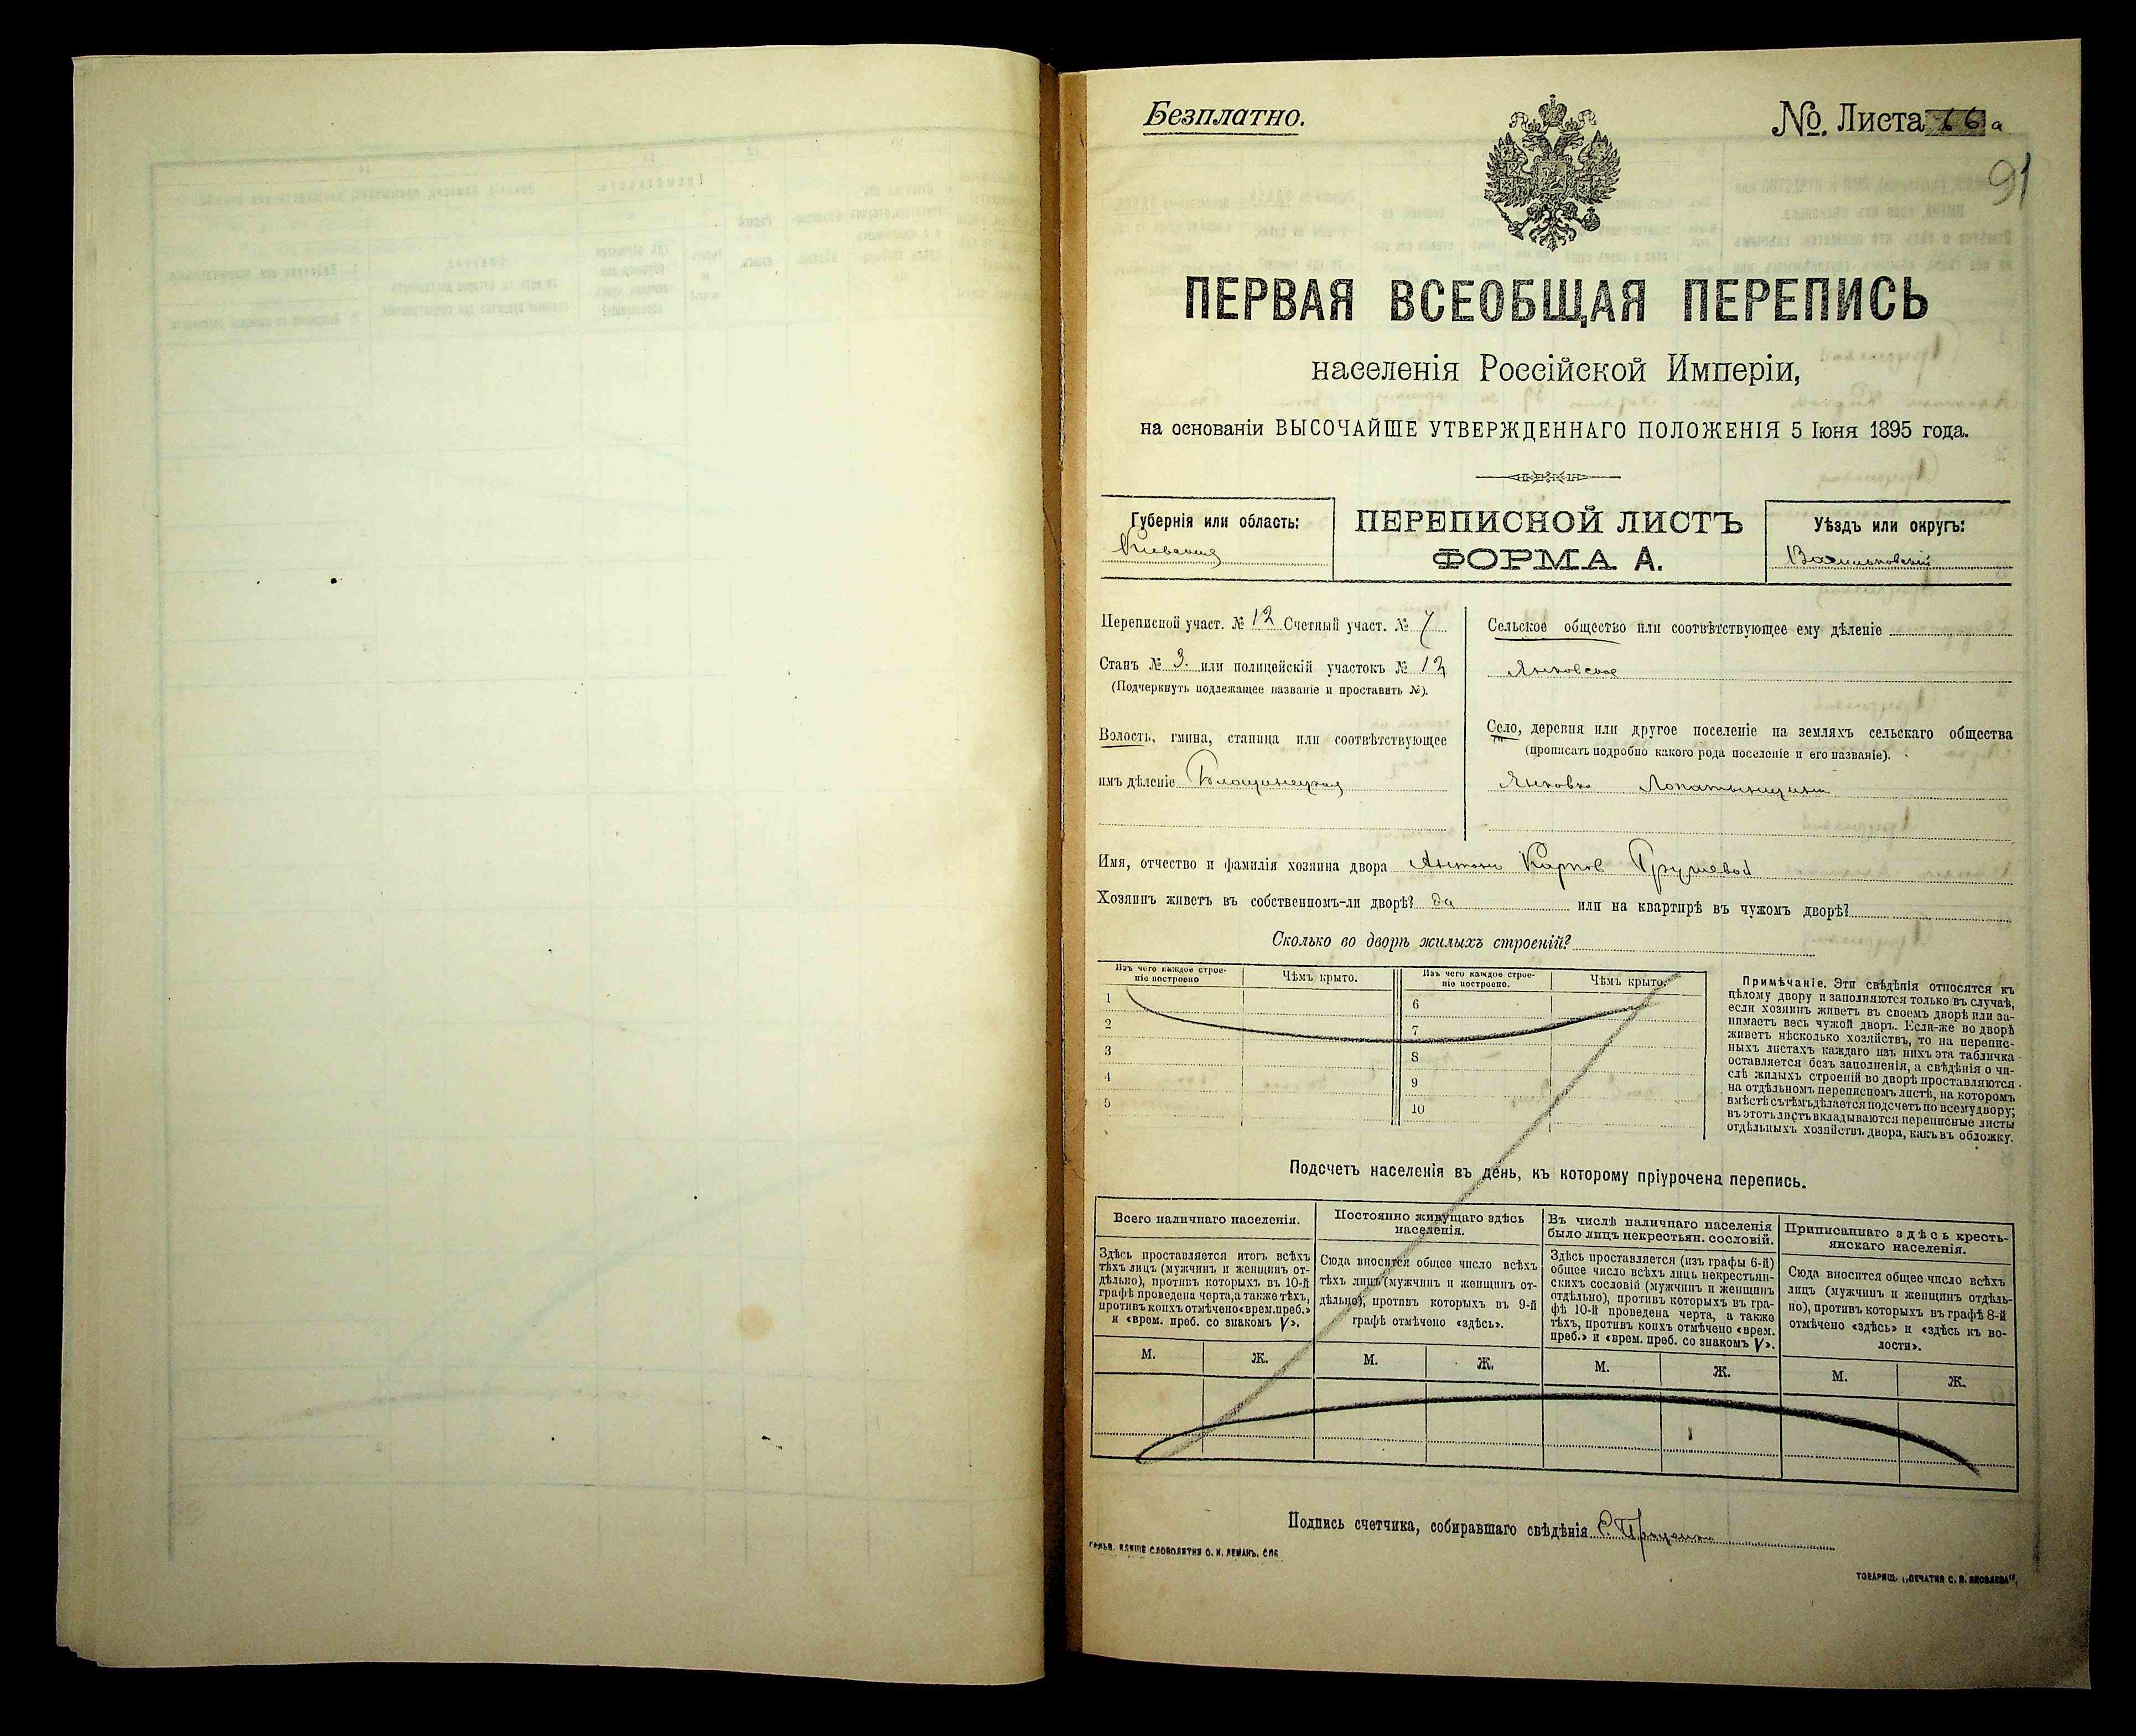 Безплатно.
№. Листа 66 а
91
ПЕРВАЯ ВСЕОБЩАЯ ПЕРЕПИСЬ
населенія Россійской Имперіи,
на основаніи ВЫСОЧАЙШЕ УТВЕРЖДЕННАГО ПОЛОЖЕНІЯ 5 Іюня 1895 года.
Губернія или область:
Киевская
ПЕРЕПИСНОЙ ЛИСТЪ
ФОРМА А.
Уѣздъ или округъ:
Васильковскій
Переписной участ. № 12 Счетный участ. № 7
Станъ № 3. или полицейскій участокъ № 12
(Подчеркнуть подлежащее названіе и проставить №).
Волость, гмина, станица или соотвѣтствующее
имъ дѣленіе Блощинецкая
Сельское общество или соотвѣтствующее ему дѣленіе
Янковское
Село, деревня или другое поселеніе на земляхъ сельскаго общества
(прописать подробно какого рода поселеніе и его названіе).
Янковка Лопатинщина
Имя, отчество и фамилія хозяина двора Антон Карпов Грушевой
Хозяинъ живетъ въ собственномъ-ли дворѣ? да или на квартирѣ въ чужомъ дворѣ?
Сколько во дворѣ жилыхъ строеній?
Изъ чего каждое строе-
ніе построено
Чѣмъ крыто.
Изъ чего каждое строе-
ніе построено.
Чѣмъ крыто.
1
6
2
7
3
8
4
9
5
10
Примѣчаніе. Эти свѣдѣнія относятся къ
цѣлому двору и заполняются только въ случаѣ,
если хозяинъ живетъ въ своемъ дворѣ или за-
нимаетъ весь чужой дворъ. Если-же во дворѣ
живетъ нѣсколько хозяйствъ, то на перепис-
ныхъ листахъ каждаго изъ нихъ эта табличка
оставляется безъ заполненія, а свѣдѣнія о чи-
слѣ жилыхъ строеній во дворѣ проставляются
на отдѣльномъ переписномъ листѣ, на которомъ
вмѣстѣ съ тѣмъ дѣлается подсчетъ по всему двору;
въ этотъ листъ вкладываются переписные листы
отдѣльныхъ хозяйствъ двора, какъ въ обложку.
Подсчетъ населенія въ день, къ которому пріурочена перепись.
Всего наличнаго населенія.
Здѣсь проставляется итогъ всѣхъ
тѣхъ лицъ (мужчинъ и женщинъ от-
дѣльно), противъ которыхъ въ 10-й
графѣ проведена черта, а также тѣхъ,
противъ коихъ отмѣчено «врем. преб.»
и «врем. преб. со знакомъ V».
М.
Ж.
Постоянно живущаго здѣсь
населенія.
Сюда вносится общее число всѣхъ
тѣхъ лицъ (мужчинъ и женщинъ от-
дѣльно), противъ которыхъ въ 9-й
графѣ отмѣчено «здѣсь».
М.
Ж.
Въ числѣ наличнаго населенія
было лицъ некрестьян. сословій.
Здѣсь проставляется (изъ графы 6-й)
общее число всѣхъ лицъ некрестьян-
скихъ сословій (мужчинъ и женщинъ
отдѣльно), противъ которыхъ въ гра-
фѣ 10-й проведена черта, а также
тѣхъ, противъ коихъ отмѣчено «врем.
преб.» и «врем. преб. со знакомъ V».
М.
Ж.
Приписаннаго здѣсь кресть-
янскаго населенія.
Сюда вносится общее число всѣхъ
лицъ (мужчинъ и женщинъ отдѣль-
но), противъ которыхъ въ графѣ 8-й
отмѣчено «здѣсь» и «здѣсь къ во-
лости».
М.
Ж.
Подпись счетчика, собиравшаго свѣдѣнія
СЛОВОЛИТНЯ О. И. ЛЕМАНЪ, СПБ
ТОВАРИЩ. „ПЕЧАТНЯ С. П. ЯКОВЛЕВА“.